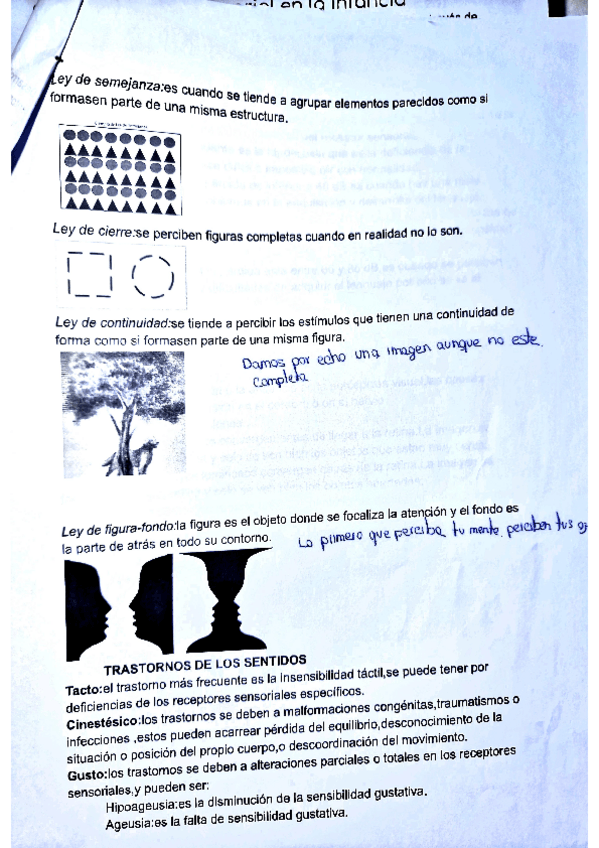 en la infancia
Ley de semejanza:es cuando se tiende a agrupar elementos parecidos como si
formasen parte de una misma estructura.
Ley de cierre:se perciben figuras completas cuando en realidad no lo son.
Ley de continuidad:se tiende a percibir los estímulos que tienen una continuidad de
forma como si formasen parte de una misma figura.
Damos por echo una imagen aunque no este
completa
Ley de figura-fondo:la figura es el objeto donde se focaliza la atención y el fondo es
la parte de atrás en todo su contorno.
Lo primero que perciba tu mente, perciben tus
TRASTORNOS DE LOS SENTIDOS
Tacto:el trastorno más frecuente es la insensibilidad táctil,se puede tener por
deficiencias de los receptores sensoriales específicos.
Cinestésico:los trastornos se deben a malformaciones congénitas,traumatismos o
infecciones ,estos pueden acarrear pérdida del equilibrio,desconocimiento de la
situación o posición del propio cuerpo,o descoordinación del movimiento.
Gusto:los trastornos se deben a alteraciones parciales o totales en los receptores
sensoriales,y pueden ser:
Hipoageusia:es la disminución de la sensibilidad gustativa.
Ageusia:es la falta de sensibilidad gustativa.